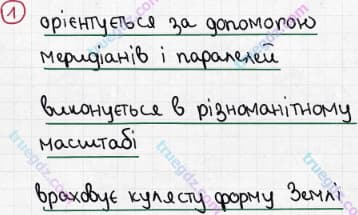 1 орієнтується за допомогою
меридіанів і паралелей
виконується в різноманітному
масштабі
враховує кулясту форму Землі